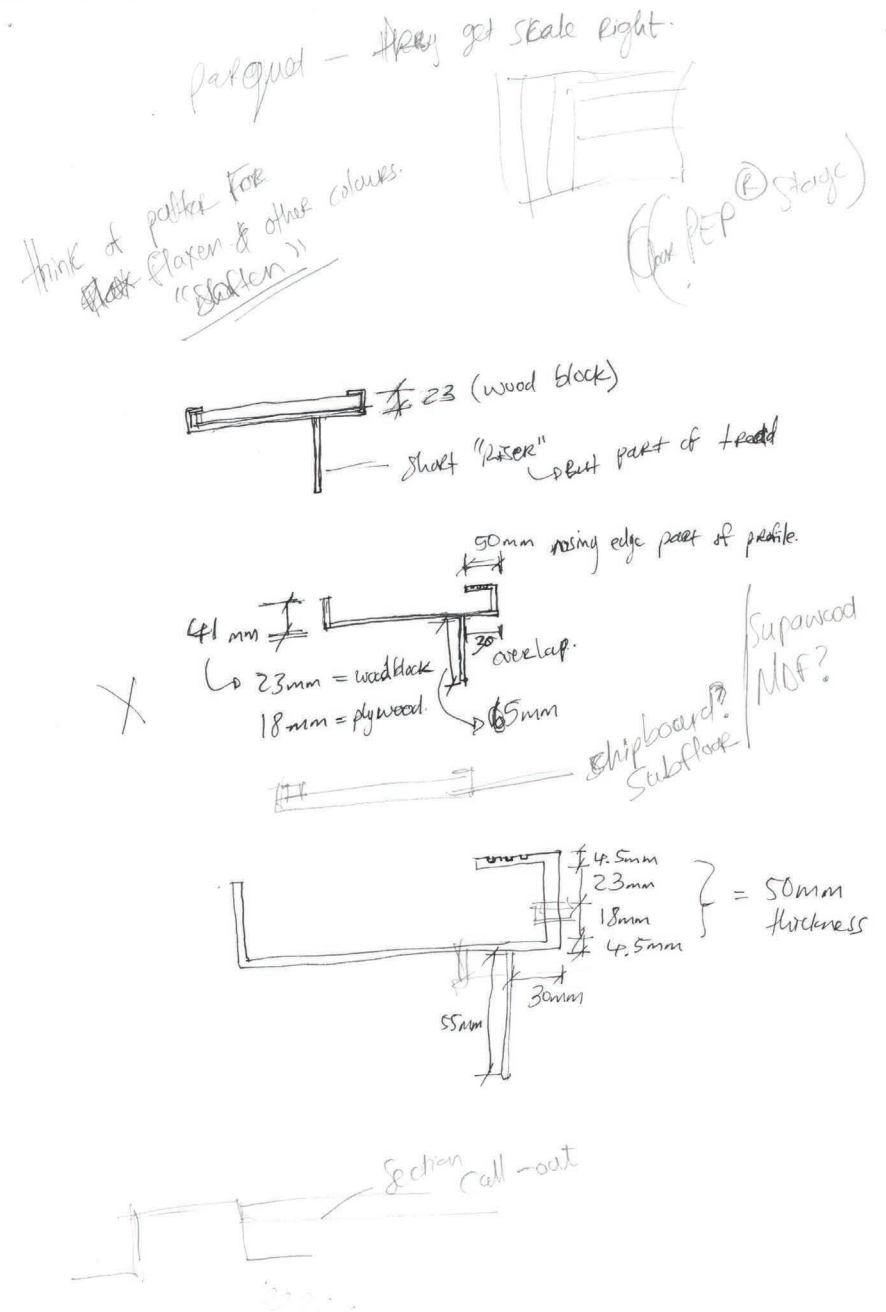 parquet – get skale right.
think of patter for
flaxen & other colours.
PEP ® Stage)
23 (wood block)
short "Riser"
But part of tread
50mm nosing edge part of profile.
41 mm
30
overlap.
23mm = woodblock
18mm = plywood.
65mm
X
Supawood
MDF?
chipboard?
Subfloor
4.5mm
23mm
18mm
4.5mm
= 50mm
thickness
30mm
55mm
Section
Call-out